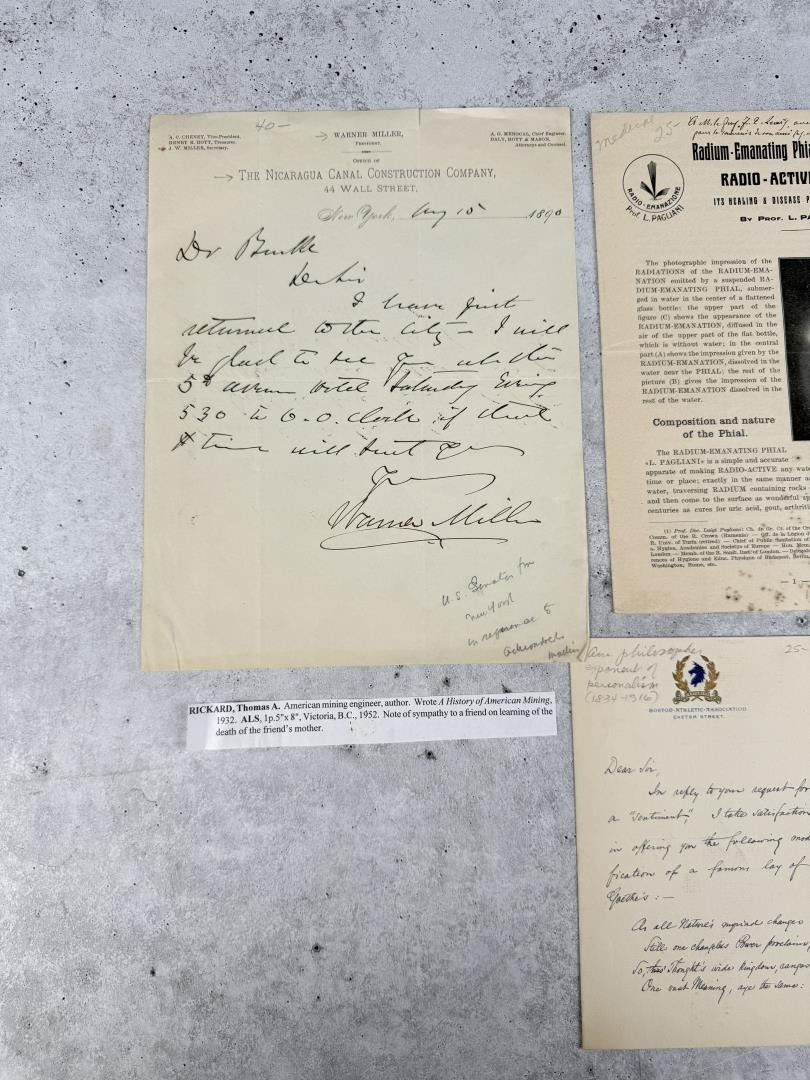 40-
A. C. CHENEY, Vice-President,
HENRY R. HOYT, Treasurer.
J. W. MILLER, Secretary.
WARNER MILLER,
PRESIDENT.
A. G. MENOCAL, Chief Engineer,
DALY, HOYT & MASON,
Attorneys and Counsel.
OFFICE OF
THE NICARAGUA CANAL CONSTRUCTION COMPANY,
44 WALL STREET,
New York, Aug 15 1890
Dr Burke
Dr Sir
I have just
returned to the city - I will
be glad to see you at the
5th avenue Hotel Saturday Evng
5 30 to 6. O. Clock if that
time will suit you
Yrs
Warner Miller
U.S. Senator from
New York
in reference to
Adirondack
RICKARD, Thomas A. American mining engineer, author. Wrote A History of American Mining,
1932. ALS, 1p.5"x 8", Victoria, B.C., 1952. Note of sympathy to a friend on learning of the
death of the friend's mother.
medical
25-
Radium-Emanating Phia
RADIO-ACTIVE
ITS HEALING & DISEASE P
BY PROF. L. PA
RADIO-EMANAZIONE
Prof. L. PAGLIANI
The photographic impression of the
RADIATIONS of the RADIUM-EMA-
NATION emitted by a suspended RA-
DIUM-EMANATING PHIAL, submer-
ged in water in the center of a flattened
glass bottle: the upper part of the
figure (C) shows the appearance of the
RADIUM-EMANATION, diffused in the
air of the upper part of the flat bottle,
which is without water; in the central
part (A) shows the impression given by the
RADIUM-EMANATION, dissolved in the
water near the PHIAL; the rest of the
picture (B) gives the impression of the
RADIUM-EMANATION dissolved in the
rest of the water.
Composition and nature
of the Phial.
The RADIUM-EMANATING PHIAL
«L. PAGLIANI» is a simple and accurate
apparate of making RADIO-ACTIVE any wate
time or place; exactly in the same manner a
water, traversing RADIUM containing rocks
and then come to the surface as wonderful sp
centuries as cures for uric acid, gout, arthriti
(1) Prof. Doc. Luigi Pagliani: Ch. de Gr. Cr. of the Cr
Comm. of the R. Crown (Rumenia) — Off. de la Légion d
R. Univ. of Turin (retired) — Chief of Public Sanitation of
a. Hygien. Academies and Societys of Europe — Hon. Mem
London — Memb. of the R. Sanit. Inst. of London. — Delegate
rences of Hygiene and Educ. Physique of Budapest, Berlin,
Washington, Rome, etc.
— 1 —
Am philosopher
exponent of
personalism
(1834-1916)
25-
BOSTON·ATHLETIC·ASSOCIATION
EXETER STREET.
Dear Sir,
In reply to your request for
a "sentiment", I take satisfaction
in offering you the following mod
fication of a famous lay of
Goethe's: —
As all Nature's myriad changes
Still one changeless Power proclaim,
So, thro' Thought's wide Kingdom, ranges
One vast Meaning, aye the same: